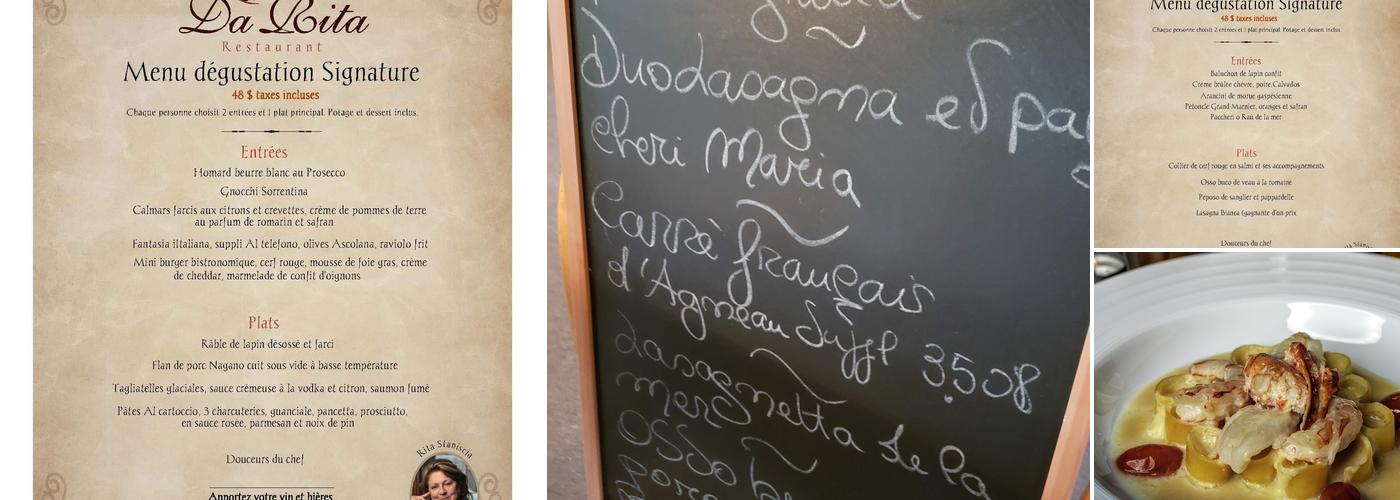 Da Rita
Restaurant
Menu dégustation Signature
48 $ taxes incluses
Chaque personne choisit 2 entrées et 1 plat principal. Potage et dessert inclus.
Entrées
Homard beurre blanc au Prosecco
Gnocchi Sorrentina
Calmars farcis aux citrons et crevettes, crème de pommes de terre
au parfum de romarin et safran
Fantasia iItaliana, suppli Al telefono, olives Ascolana, raviolo frit
Mini burger bistronomique, cerf rouge, mousse de foie gras, crème
de cheddar, marmelade de confit d'oignons
Plats
Râble de lapin désossé et farci
Flan de porc Nagano cuit sous vide à basse température
Tagliatelles glaciales, sauce crémeuse à la vodka et citron, saumon fumé
Pâtes Al cartoccio, 3 charcuteries, guanciale, pancetta, prosciutto,
en sauce rosée, parmesan et noix de pin
Douceurs du chef
Rita Staniscia
Apportez votre vin et bières
Duolasagna et pa
cheri Maria
Carré français
d'Agneau Suppl 3.50$
Lasagnetta de la
mer
Osso b
Menu dégustation Signature
48 $ taxes incluses
Chaque personne choisit 2 entrées et 1 plat principal. Potage et dessert inclus.
Entrées
Baluchon de lapin confit
Crème brûlée chèvre, poire,Calvados
Arancini de morue gaspésienne
Pétoncle Grand Marnier, oranges et safran
Paccheri o Raù de la mer
Plats
Collier de cerf rouge en salmi et ses accompagnements
Osso buco de veau à la romaine
Peposo de sanglier et pappardelle
Lasagna Bianca (gagnante d'un prix
Douceurs du chef